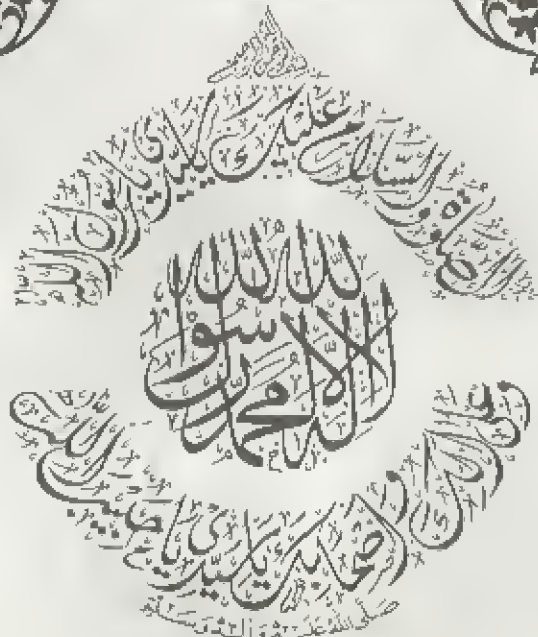 بسم الله الرحمن الرحيم
الصلوة والسلام عليك يا سيدي يا رسول الله
لا اله الا الله محمد رسول الله
وعلى آلك واصحابك يا سيدي يا حبيب الله
صلى الله عليه وآله وسلم